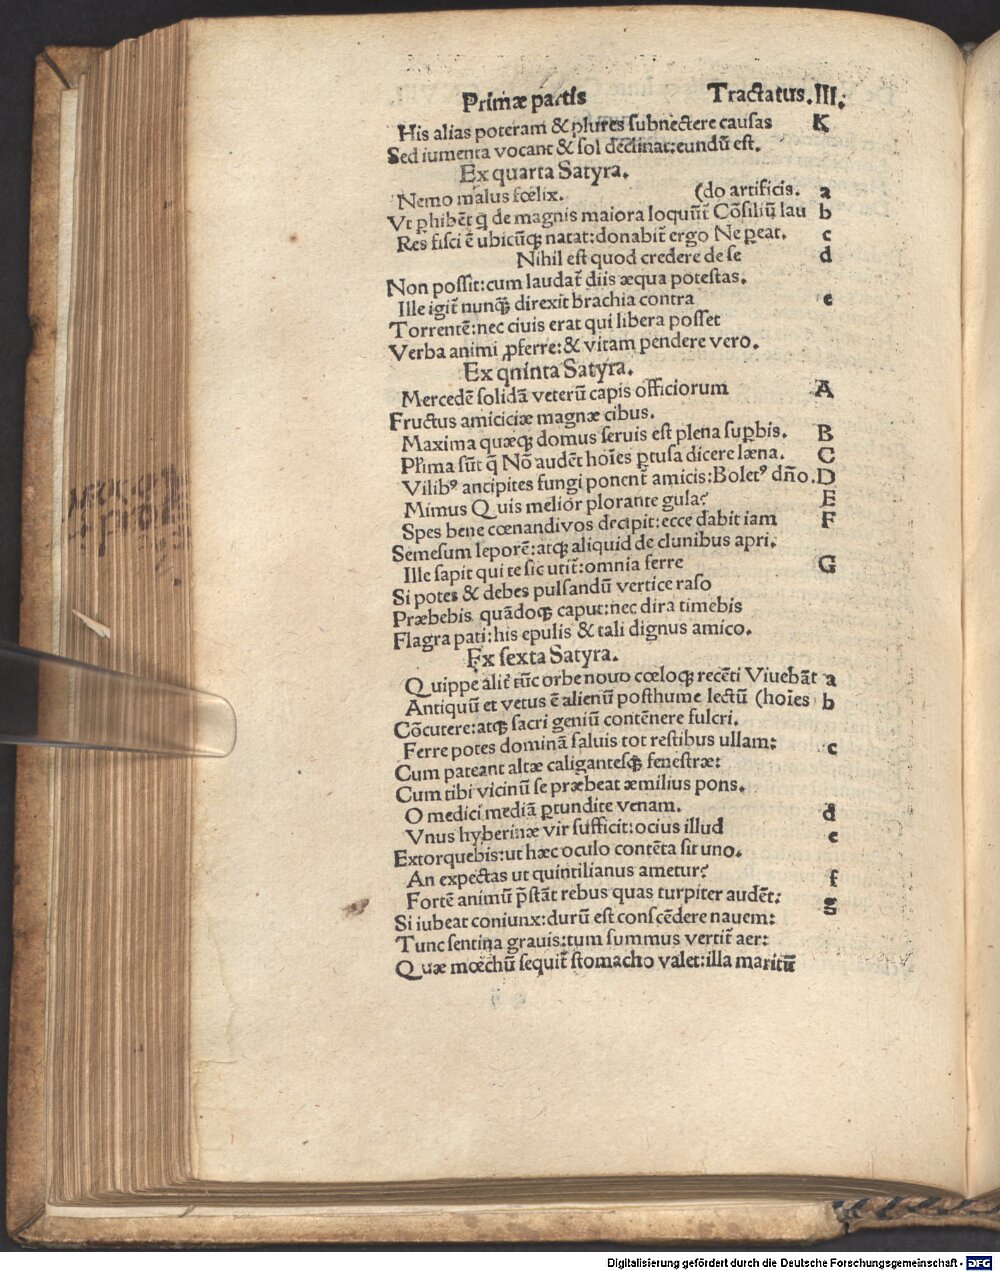 Primæ partis Tractatus.III.
His alias poteram & plures subnectere causas K
Sed iumenta vocant & sol declinat:eundũ est.
Ex quarta Satyra.
Nemo malus fœlix. (do artificis. a
Vt p̱hibẽt q̃ de magnis maiora loquũt̃ Cõsiliũ lau b
Res fisci ẽ ubicũqȝ natat:donabit̃ ergo Ne p̱eat. c
Nihil est quod credere de se d
Non possit:cum laudat̃ diis æqua potestas.
Ille igit̃ nunqȝ̃ direxit brachia contra e
Torrentẽ:nec ciuis erat qui libera posset
Verba animi ꝓferre:& vitam pendere vero.
Ex qninta Satyra.
Mercedẽ solidã veterũ capis officiorum A
Fructus amiciciæ magnæ cibus.
Maxima quæqȝ domus seruis est plena sup̱bis. B
Pl'ima sũt q̃ Nõ audẽt hoĩes p̱tusa dicere læna. C
Vilibꝰ ancipites fungi ponent̃ amicis:Boletꝰ dño. D
Mimus Quis melior plorante gula? E
Spes bene cœnandi vos decipit:ecce dabit iam F
Semesum leporẽ:atqȝ aliquid de clunibus apri.
Ille sapit qui te sic utit̃:omnia ferre G
Si potes & debes pulsandũ vertice raso
Præbebis quãdoqȝ caput:nec dira timebis
Flagra pati:his epulis & tali dignus amico.
Ex sexta Satyra.
Quippe alit̃ tũc orbe nouo cœloqȝ recẽti Viuebãt a
Antiquũ et vetus ẽ alienũ posthume lectũ (hoĩes b
Cõcutere:atqȝ sacri geniũ contẽnere fulcri.
Ferre potes dominã saluis tot restibus ullam: c
Cum pateant altæ caligantesqȝ fenestræ:
Cum tibi vicinũ se præbeat æmilius pons.
O medici mediã p̱tundite venam. d
Vnus hyberinæ vir sufficit:ocius illud e
Extorquebis:ut hæc oculo contẽta sit uno.
An expectas ut quintilianus ametur? f
Fortẽ animũ p̃stãt rebus quas turpiter audẽt: g
Si iubeat coniunx:durũ est conscẽdere nauem:
Tunc sentina grauis:tum summus vertit̃ aer:
Quæ mœchũ sequit̃ stomacho valet:illa maritũ
Digitalisierung gefördert durch die Deutsche Forschungsgemeinschaft - DFG